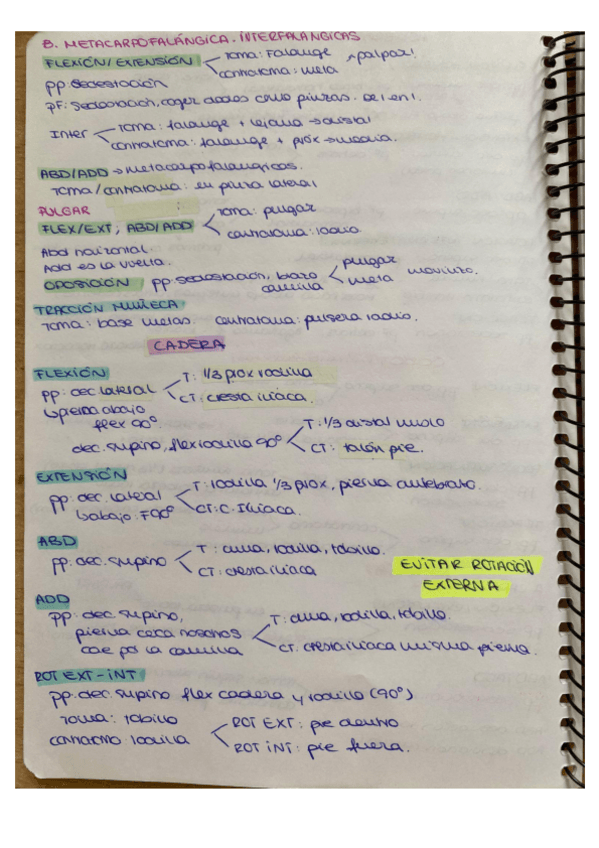 B. METACARPOFALÁNGICA. INTERFALANGICAS
FLEXIÓN/EXTENSIÓN Toma: Falange palpar!
contratoma: meta
pp: sedestación
PF: sedestación, coger dedos como pinzas. De 1 en 1.
Inter Toma: falange + lejana → distal
contratoma: falange + próx → media.
ABD/ADD → metacarpofalangicas.
Toma/contratoma: en pinza lateral
PULGAR
FLEX/EXT, ABD/ADD toma: pulgar
contratoma: radio
Abd horizontal.
Add es la vuelta.
OPOSICIÓN pp: sedestación, brazo camilla pulgar meta movimto.
TRACCIÓN MUÑECA
Toma: base metas. contratoma: pulsera radio.
CADERA
FLEXIÓN
pp: dec lateral T: 1/3 prox rodilla
↳ pierna abajo CT: cresta ilíaca.
flex 90°
dec. supino, flex rodilla 90° T: 1/3 distal muslo
CT: talón pie.
EXTENSIÓN
pp: dec. lateral T: rodilla 1/3 prox, pierna antebrazo.
↳ abajo: F90° CT: C. Ilíaca.
ABD
pp: dec. supino T: cuna, rodilla, tobillo.
CT: cresta iliaca
EVITAR ROTACIÓN
EXTERNA
ADD
pp: dec. supino, T: cuna, rodilla, tobillo.
pierna cerca nosotros
cae por la camilla CT: cresta ilíaca misma pierna.
ROT EXT-INT
pp: dec. supino flex cadera y rodilla (90°)
Toma: tobillo ROT EXT: pie dentro
contratoma rodilla ROT INT: pie fuera.